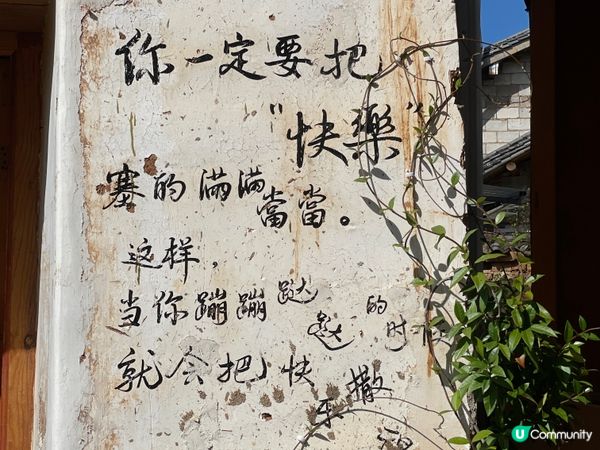 你一定要把
"快樂"
塞的满满
當當。
这样，
当你蹦蹦跶
跶的时候
就会把快
乐撒
U Community